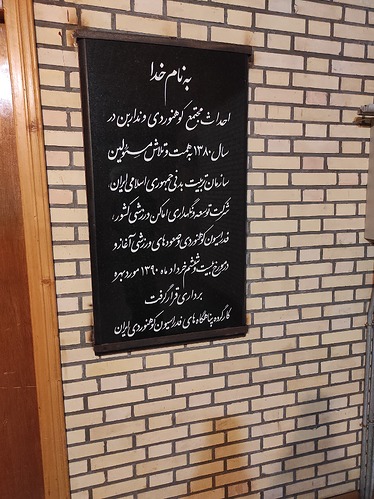 به نام خدا
احداث مجتمع کوهنوردی ونداربن در
سال ۱۳۸۰ به همت و تلاش مسئولین
سازمان تربیت بدنی جمهوری اسلامی ایران،
شرکت توسعه و نگهداری اماکن ورزشی کشور،
فدراسیون کوهنوردی و صعودهای ورزشی آغاز و
در مورخ بیست و ششم خرداد ماه ۱۳۹۰ مورد بهره
برداری قرار گرفت
کارگروه پناهگاه های فدراسیون کوهنوردی ایران